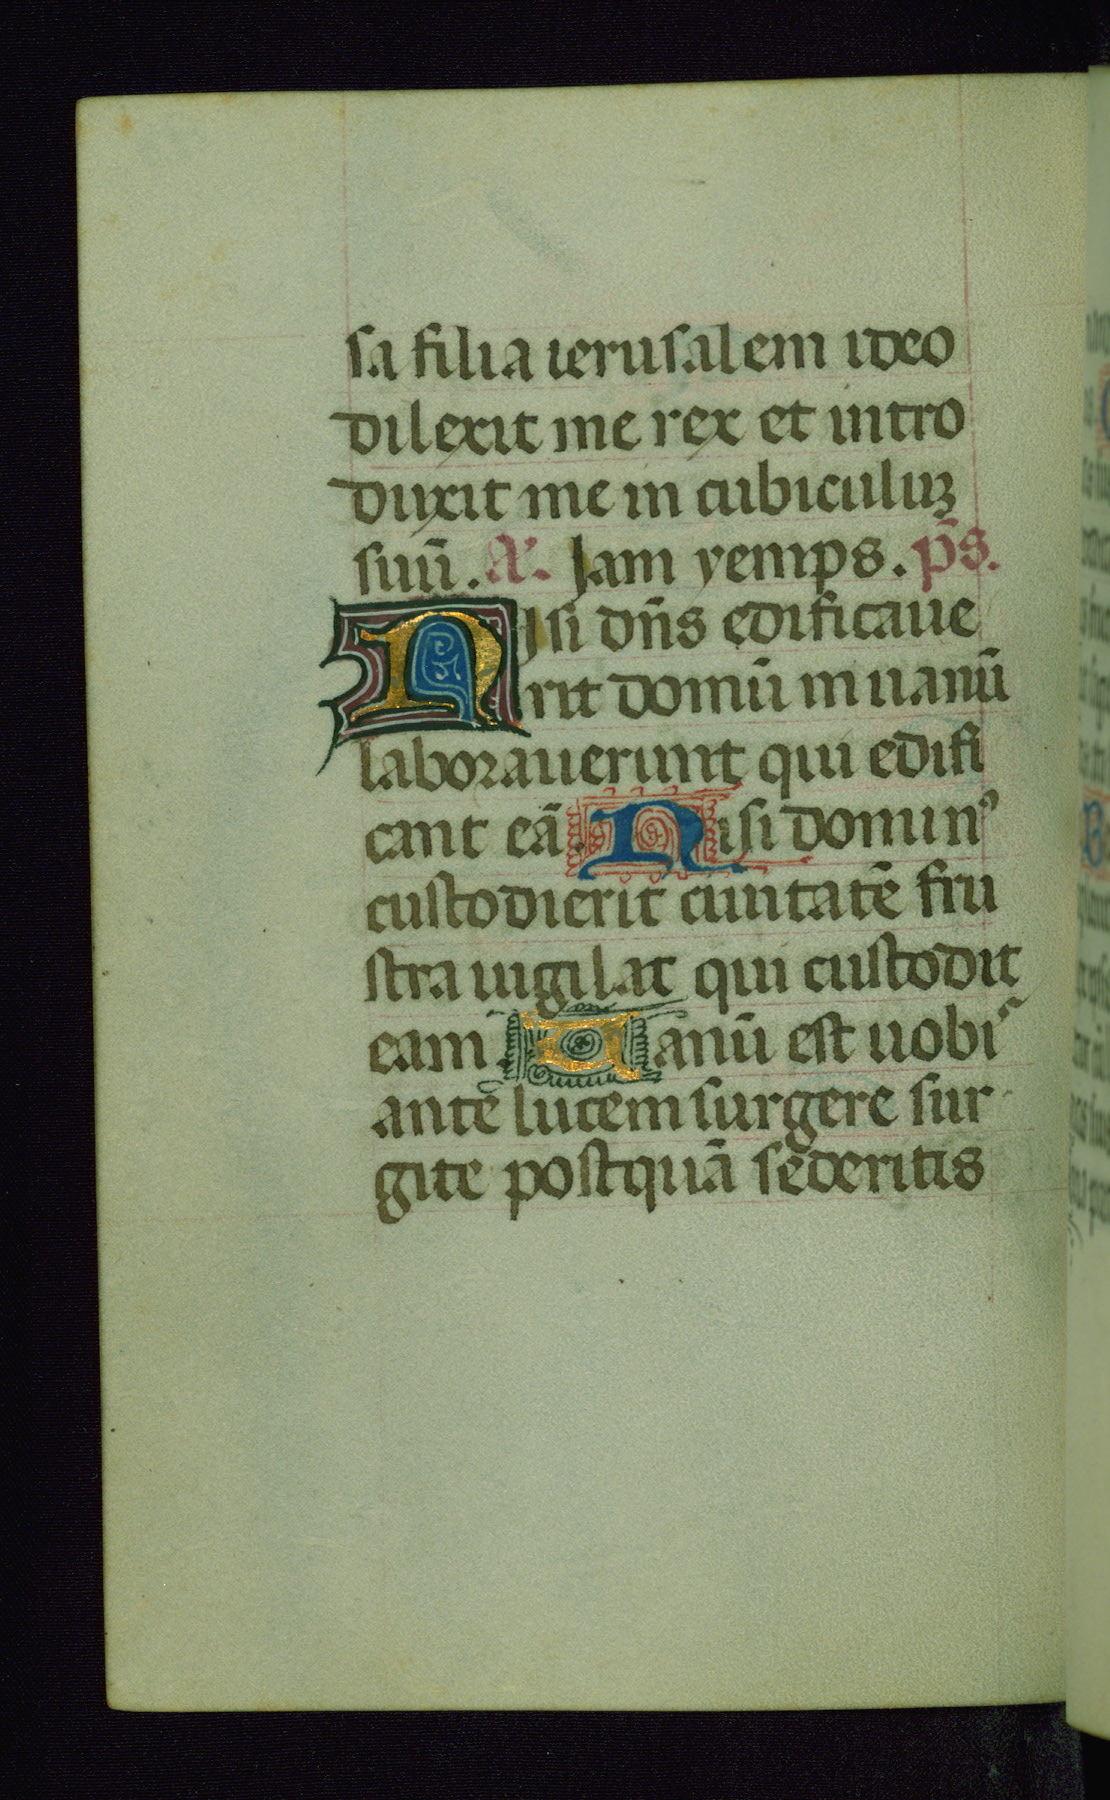 sa filia ierusalem ideo
dilexit me rex et intro
duxit me in cubiculuꝫ
suū. A᷒. Jam yemps. p̄s.
Nisi dn̄s edificaue
rit domū in uanū
laborauerunt qui edifi
cant eā. Nisi dominꝰ
custodierit ciuitatē fru
stra uigilat qui custodit
eam. Uanū est uobis
ante lucem surgere sur
gite postquā sederitis